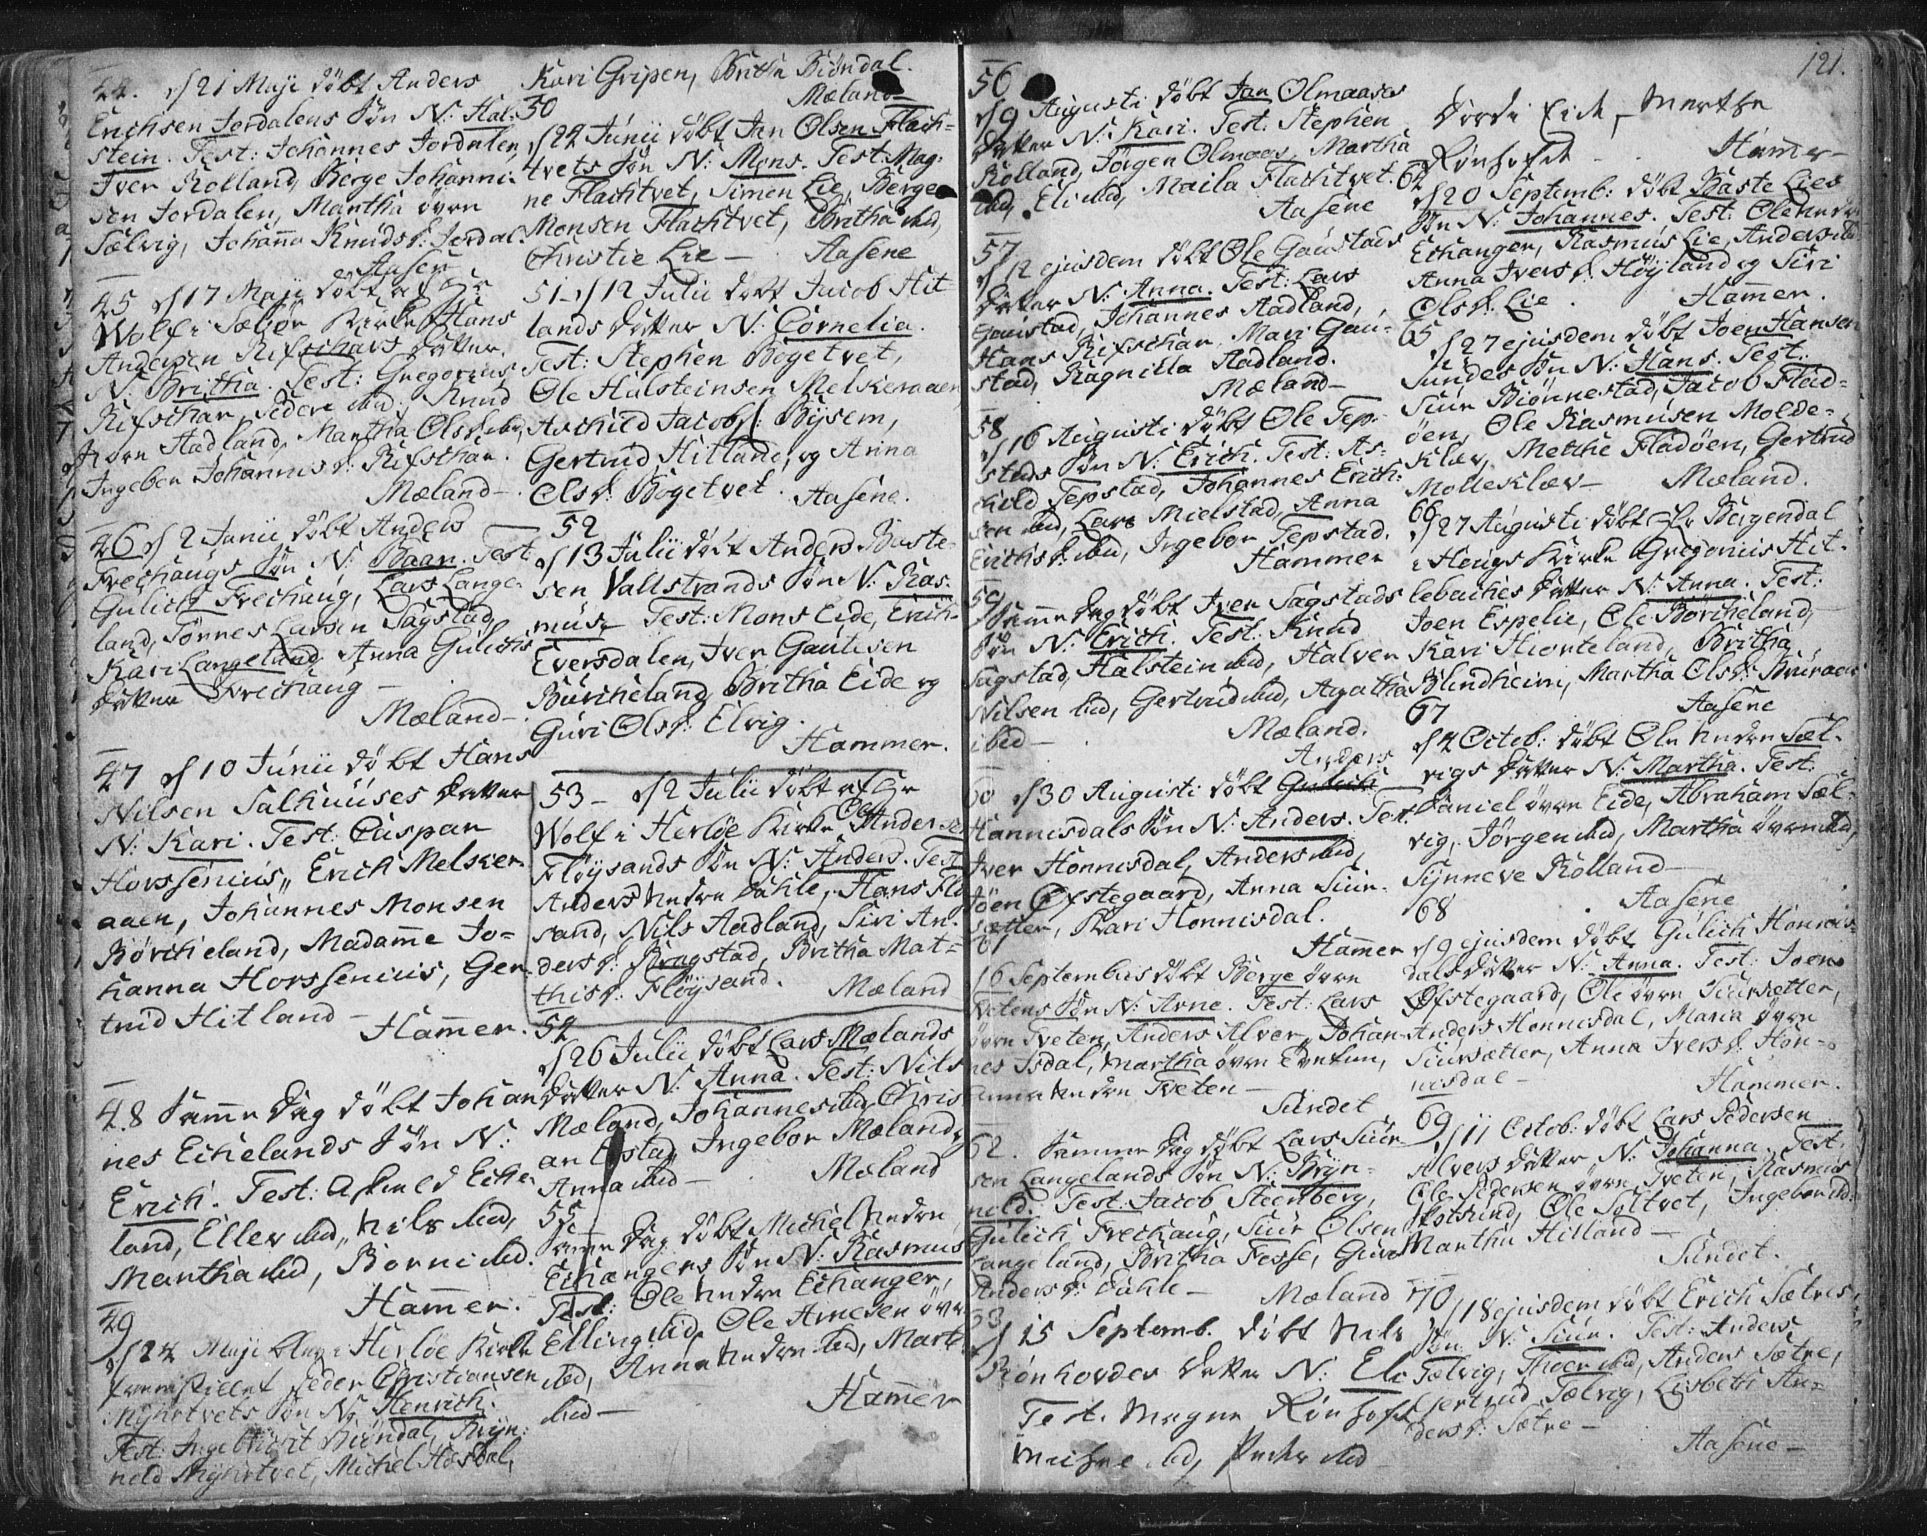 44. d 21 Maji døbt Anders
Erichsen Jordalens Søn N: Hal-
stein. Test: Johannes Jordalen,
Iver Rolland, Berge Johanni-
sen Jordalen, Martha øvre
Sælvig, Johanna Knudsd: Jordal.
Aasen
45 d 17 Maji døbt af Hr
Wolf i Sæbøe Kirke Hans
Andersen Rifschars Datter
N: Britha. Test: Gregorius
Rifschar, Peder ibid, Knud
Aadland, Martha Olsd: ibid,
Ingebor Johannisd: Rifschar.
Mæland
46 d 2 Junii døbt Anders
Frechaugs Søn N: Baar. Test
Gulich Frechaug, Lars Lange-
land, Tønnes Larsen Sagstad,
Kari Langeland, Anna Gulichs
Datter Frechaug
Mæland
47 d 10 Junii døbt Hans
Nilsen Salhuuses Datter
N: Kari. Test: Caspar
Horssenius, Erich Melsker-
aaen, Johannes Monsen
Børcheland, Madame Jo-
hanna Horssenius, Ger-
trud Hitland
Hammer.
48 Samme Dag døbt Johan-
nes Eichelands Søn N:
Erich. Test: Askild Eiche-
land, Eller ibid, Nils ibid,
Martha ibid, Borni ibid.
Hammer.
49
d 24 Maji blev i Herløe Kirke
fremstillet Peder Christiansen
Myhrtvets Søn N: Henrich.
Test: Ingebricht Biøndal, Bryn-
hild Myhrtvet, Michel Hosdal,
Kari Gripen, Britha Biøndal.
Mæland
50
d 24 Junii døbt Jan Olsen Flach-
tvets Søn N: Mons. Test: Mag-
ne Flachtvet, Simen Lie, Berge
Monsen Flachtvet, Britha ibid,
Christie Lie Aasene
51 d 12 Julii døbt Jacob Hit-
lands Datter N: Cornelia.
Test: Stephen Bogetvet,
Ole Halsteinsen Melskeraaen,
Aschild Jacobs: Bysem,
Gertrud Hitland, og Anna
Olsd: Bogetvet. Aasene.
52
d 13 Julii døbt Anders Baste-
sen Vallstrands Søn N: Ras-
mus. Test: Mons Eide, Erich
Eversdalen, Iver Gautesen
Burcheland, Britha Eide og
Guri Olsd: Elvig.
Hammer.
53 d 2 Julii døbt af Hr
Wolf i Herløe Kirke Ole Andersen
Fløysands Søn N: Anders. Test
Anders Nedre Dahle, Hans Flø-
sand, Nils Aadland, Siri An-
dersd: Bragstad, Britha Mat-
thisd: Fløysand. Mæland
54
d 26 Julii døbt Lars Mælands
Datter N: Anna. Test: Nils
Mæland, Johannes ibid, Chris-
Ingebor Mæland,
Anna ibid Mæland
55
Samme Dag døbt Michel Nedre
Echangers Søn N: Rasmus
Test: Ole Nedre Echanger,
Elling ibid, Ole Arnesen øvre
ibid, Anna Nedre ibid, Marte
ibid Hammer
121.
56
d 9 Augusti døbt Jan Olmaases
Datter N: Kari. Test: Stephen
Rolland, Jørgen Olmaas, Martha
ibid, Eli ibid, Maila Flachtvet.
Aasene
57
d 12 ejusdem døbt Ole Gaustads
Datter N: Anna. Test: Lars
Gaustad, Johannes Aadland,
Haas Rifschar, Mari Gau-
stad, Ragnilla Aadland.
Mæland
58
d 16 Augusti døbt Ole Tep-
stads Søn N: Erich. Test: As-
kild Tepstad, Johannes Erich-
sen ibid, Lars Mielstad, Anna
Erichsd: ibid, Ingebor Tepstad.
Hammer
59
Samme Dag døbt Iver Sagstads
Søn N: Erich. Test: Knud
Sagstad, Halstein ibid, Halver
Nilsen ibid, Gertrud ibid, Agatha
ibid Mæland.
Anders
60 d 30 Augusti døbt
Hannisdals Søn N: Anders. Test
Iver Honnisdal, Anders ibid,
Jøen Øfstegaard, Anna Siur-
sætter, Kari Honnisdal.
Hammer
61
16 Septembris døbt Berge øvre
Tvetens Søn N: Arne. Test: Lars
øvre Tveten, Anders Alver, Johan-
nes Isdal, Martha øvre
Anna Nedre Tveten
Sundet
62. Samme Dag døbt Lars Siur-
sen Langelands Søn N: Bryn-
nild. Test: Jacob Steenberg,
Gulich Frechaug, Siur Olsen
Langeland, Britha Fesse, Guri
Andersd: Dahle Mæland
63
d 15 Septemb. døbt Nils
Rønhovdes Datter N: Eli
Test. Magne Rønhofde
Michel ibid, Peder ibid
Dorde Eide, Merthe
Rønhofde Hamer
64
d 20 Septemb: døbt Baste Lies
Søn N: Johannes. Test: Ole Nedre
Echanger, Rasmus Lie, Anders ibid
Anna Iversd: Høyland og Siri
Olsd: Lie. Hammer.
65 d 27 ejusdem døbt Joen Hansen
Sundes Søn N: Hans. Test:
Siur Biønnestad, Jacob Flad-
øen, Ole Rasmusen Molde-
klæv, Metthe Fladøen, Gertrud
Molleklæv Mæland.
66
d 27 Augusti døbt Hr Bergendal
i Hougs Kirke Gregorius Hit-
lebaches Datter N: Anna. Test:
Joen Espelie, Ole Børcheland,
Kari Hiorteland, Britha
Blindheim, Martha Olsd:
Aasene
67
d 4 Octob: døbt Ole Nedre Sæl-
vigs Datter N: Martha. Test:
Daniel øvre Eide, Abraham Sæl-
vig, Jørgen ibid, Martha øvre ibid,
Synneve Rolland
Aasene
68
d 9 ejusdem døbt Gulich Honnis-
dals Datter N: Anna. Test: Joen
Øfstegaard, Ole øvre Siursetter,
Anders Honnisdal, Maria øvre
Siursætter, Anna Iversd: Hon-
nisdal Hammer.
69 d 11 Octob: døbt Lars Pedersen
Alvers Datter N: Johanna. Test:
Ole Pedersen øvre Tveten, Rasmus
Ole Soltvet, Ingebor ibid.
Martha Hilland
Sundet.
70 d 18 ejusdem døbt Erich Sætres
Søn N: Siur. Test: Anders
Sælvig, Thoer ibid, Anders Sætre,
Gertrud Sælvig, Lisbeth An-
dersd: Sætre Aasene